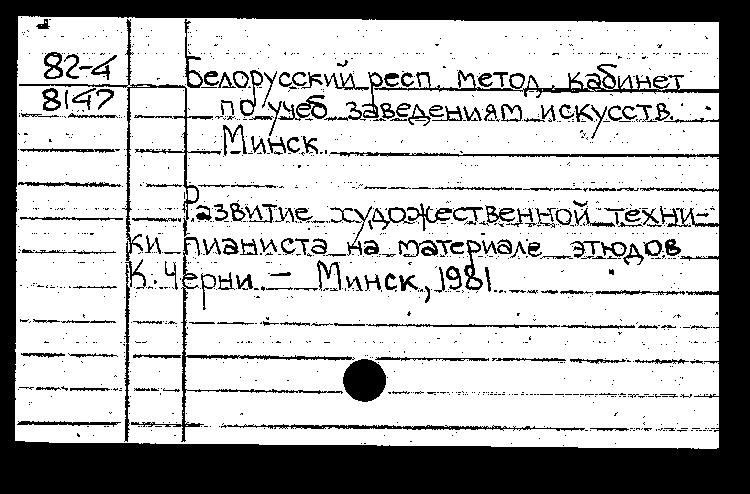 82-4
8147
Белорусский респ. метод. кабинет
по учеб заведениям искусств.
Минск.
Развитие художественной техни-
ки пианиста на материале этюдов
К. Черни. — Минск, 1981